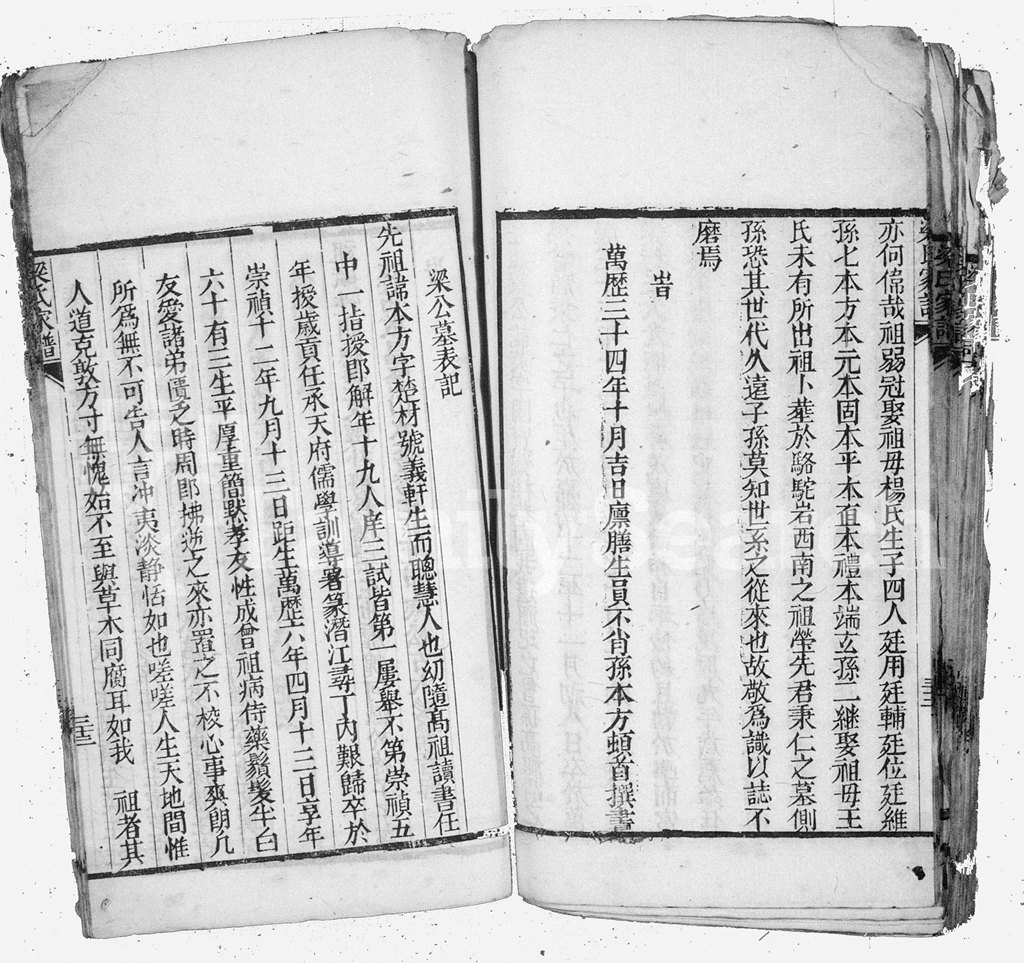 亦何偉哉祖弱冠娶祖母楊氏生子四人廷用廷輔廷位廷維
孫七本方本元本固本平本直本禮本端玄孫二継娶祖母王
氏未有所出祖卜葬於駱駝岩西南之祖塋先君秉仁之墓側
孫恐其世代久遠子孫莫知世系之從來也故敬爲識以誌不
磨焉
旹
萬歷三十四年十月吉旦廪膳生員不肖孫本方頓首撰書
梁公墓表記
先祖諱本方字楚材號義軒生而聰慧人也幼隨高祖讀書任
中一指授即解年十九入庠三試皆第一屢舉不第崇禎五
年援歲貢任承天府儒學訓導署篆潛江尋丁內艱歸卒於
崇禎十二年九月十三日距生萬歷六年四月十二日享年
六十有三生平厚重簡默孝友性成曾祖病侍藥鬚髮半白
友愛諸弟匱乏時周即拂逆之來亦置之不校心事爽朗凡
所爲無不可告人言冲夷淡静恬如也嗟嗟人生天地間惟
人道克敦方寸無愧始不至與草木同腐耳如我 祖者其
梁氏家譜
三十三
梁氏家譜
FamilySearch